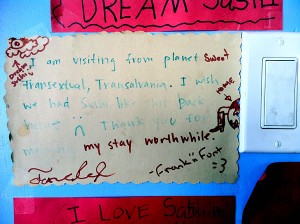 DREAM Sushi
I am visiting from planet sweet
transexual, Transalvania. I wish
we had Sushi like this back
home Thank you for
my stay worthwhile.
-Frank n Fort
I LOVE